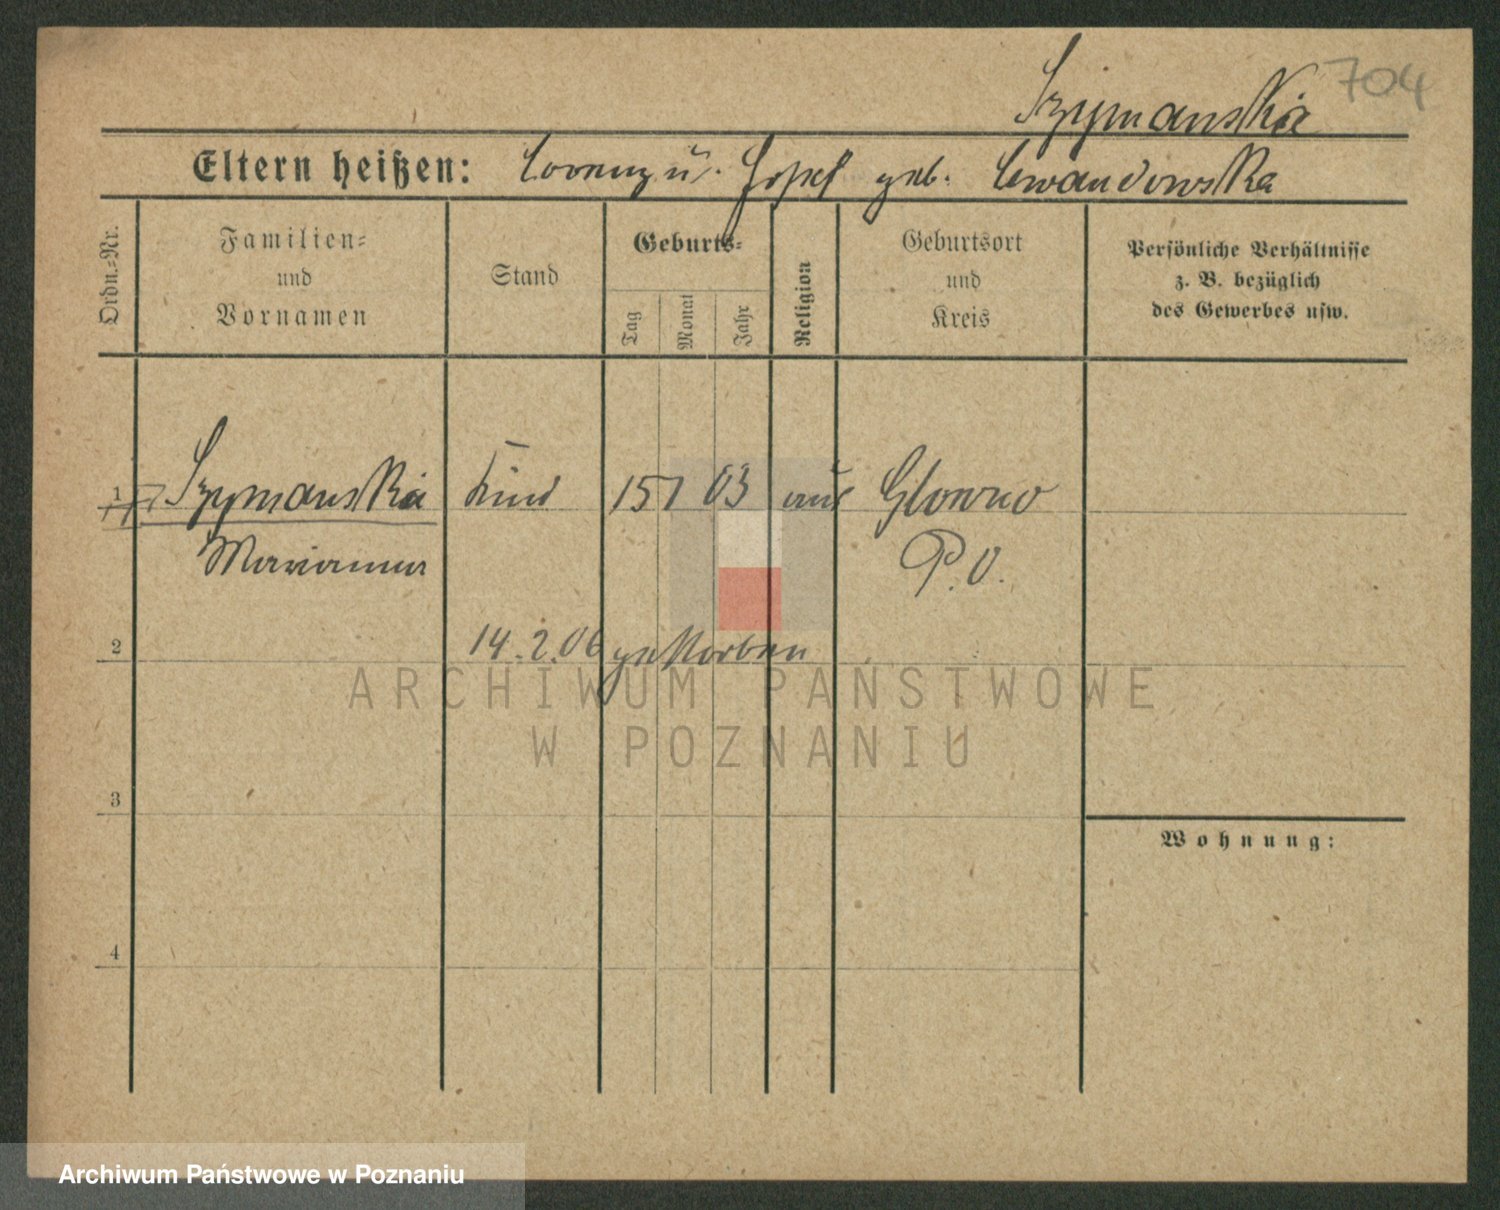 704
Szymanska
Eltern heißen: Lorenz u. Josef geb. Lewandowska
Ordn.-Nr.
Familien-
und
Vornamen
Stand
Geburts-
Tag
Monat
Jahr
Religion
Geburtsort
und
Kreis
Persönliche Verhältnisse
z. B. bezüglich
des Gewerbes usw.
1 Szymanska Kind 15 1 03 Glowno
Marianna P.O.
2 14.2.06 gestorben
ARCHIWUM PAŃSTWOWE
W POZNANIU
3
Wohnung:
4
Archiwum Państwowe w Poznaniu